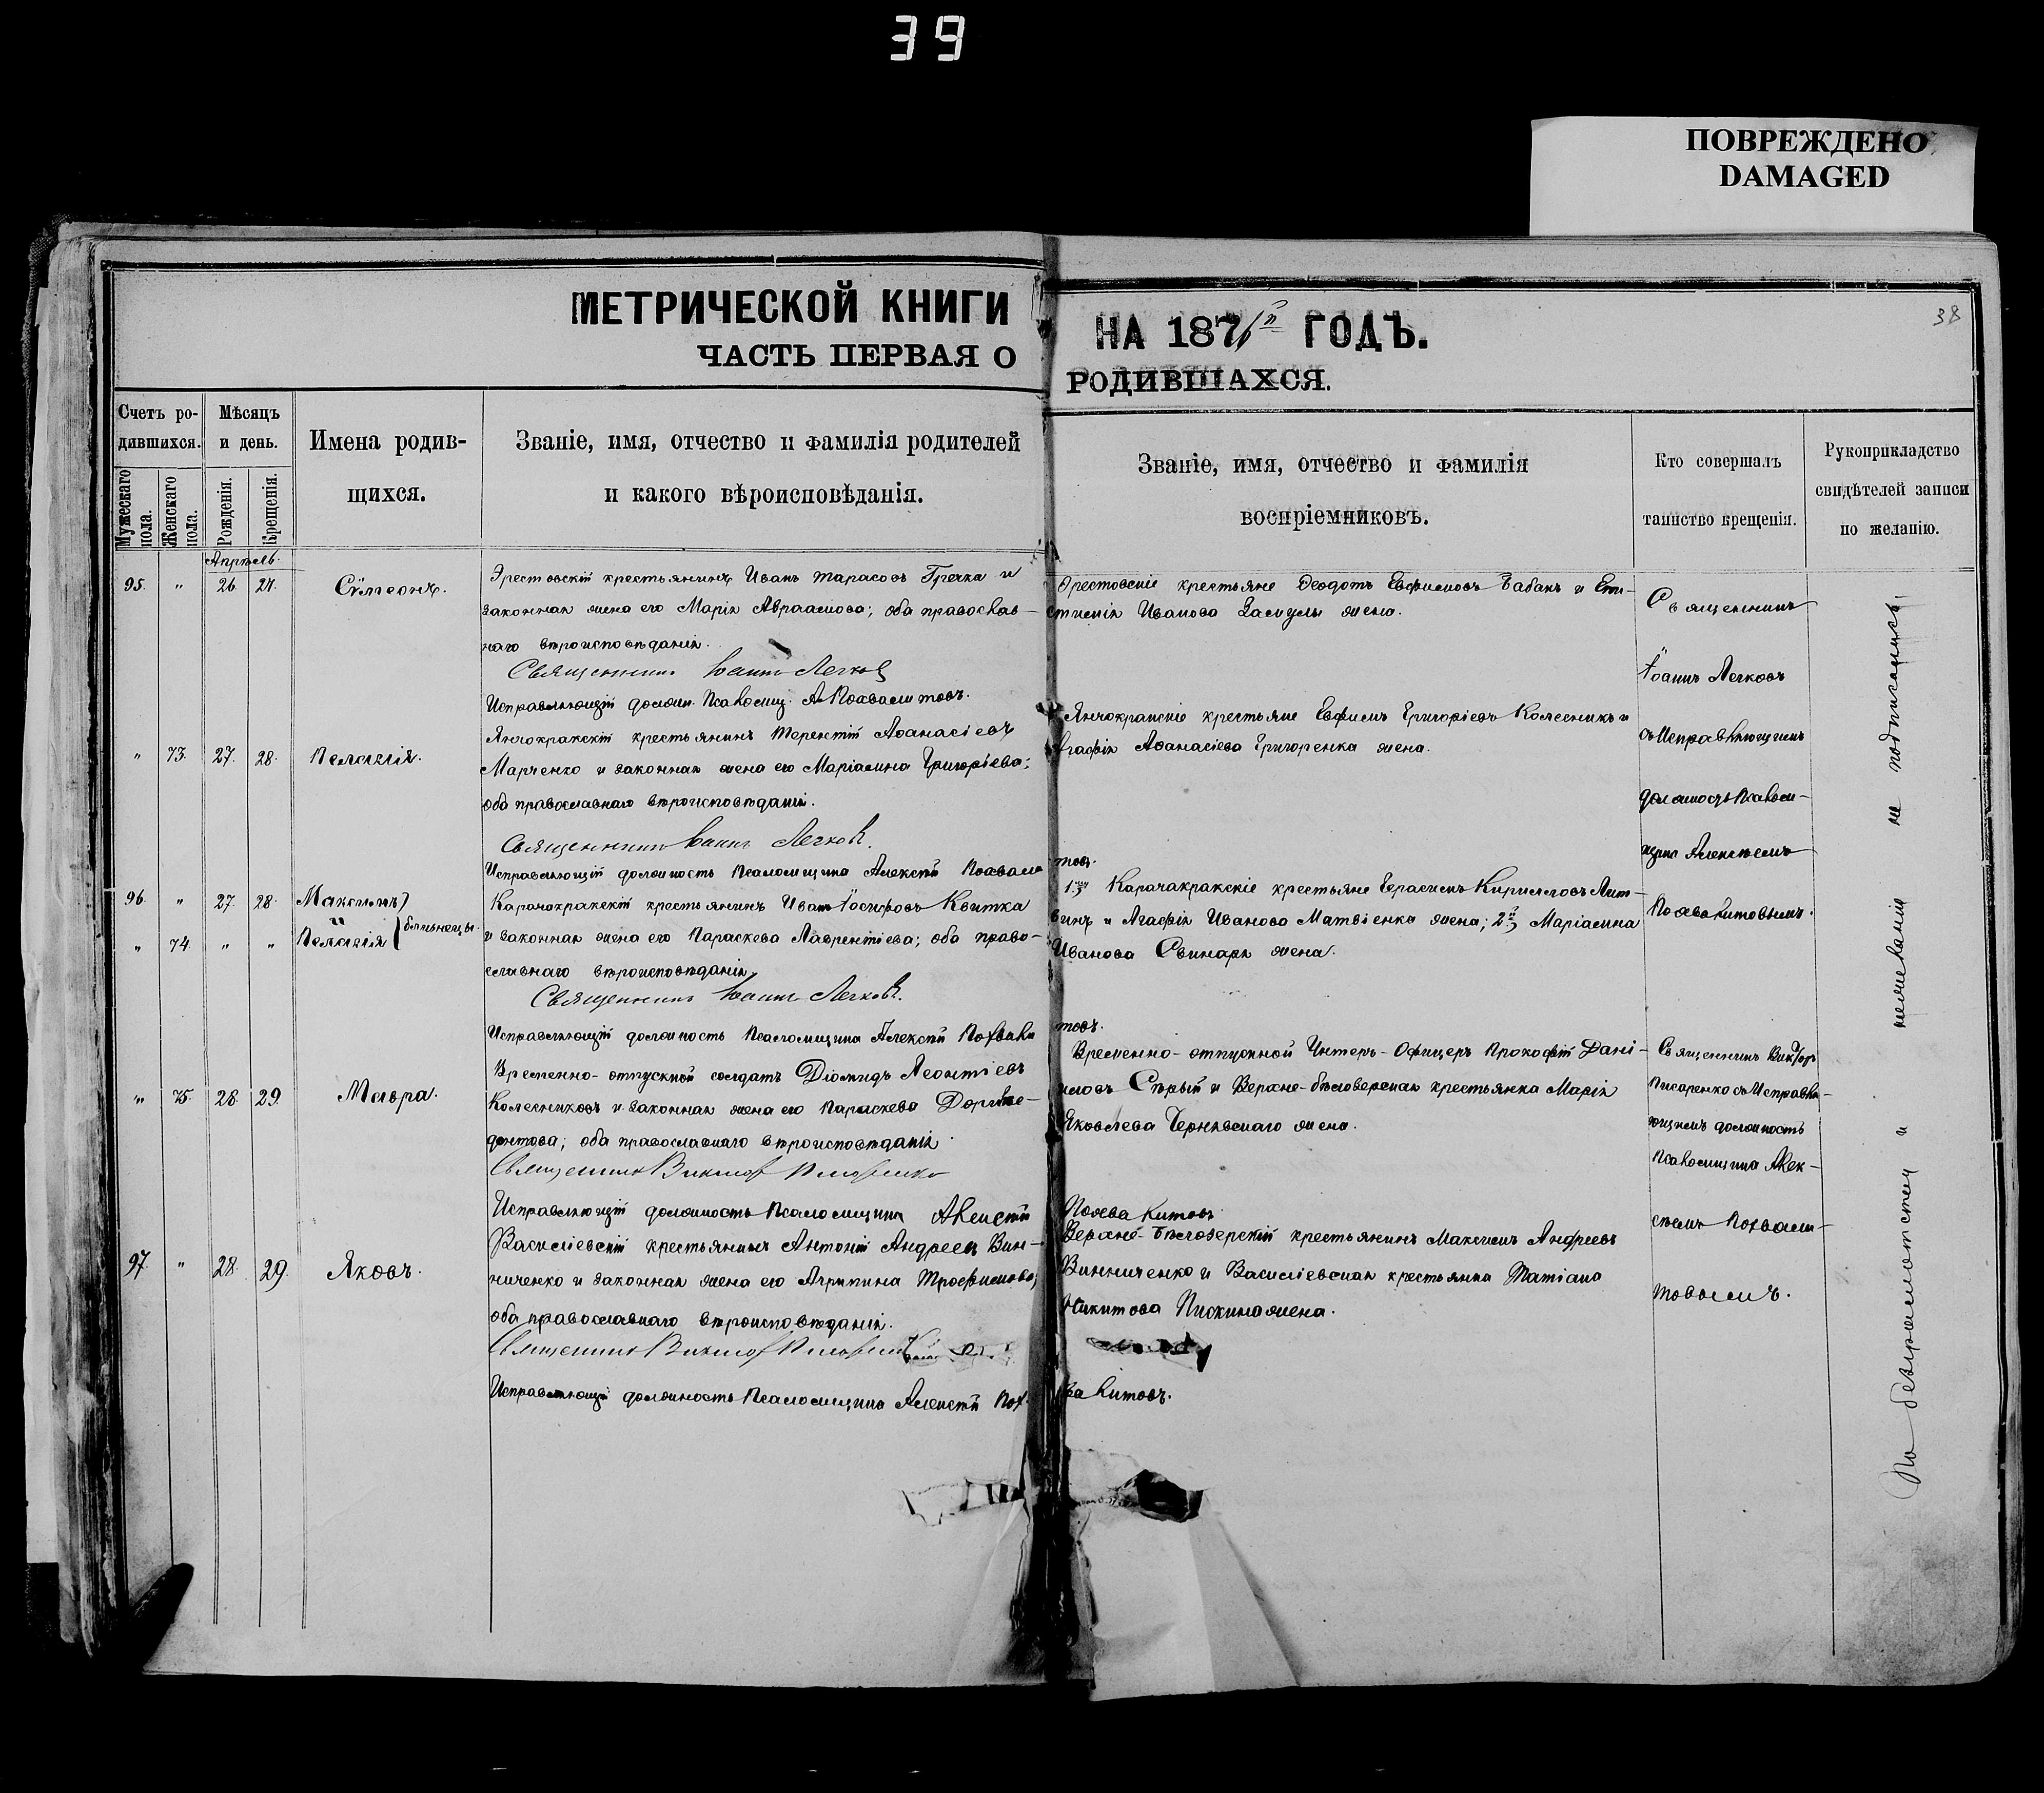 39
ПОВРЕЖДЕНО
DAMAGED
38
МЕТРИЧЕСКОЙ КНИГИ НА 1871й ГОДЪ.
ЧАСТЬ ПЕРВАЯ О РОДИВШАХСЯ.
Счетъ ро-
дившихся.
Мужескаго пола.
Женскаго пола.
Мѣсяцъ
и день.
Рожденія.
Крещенія.
Имена родив-
щихся.
Званіе, имя, отчество и фамилія родителей
и какого вѣроисповѣданія.
Званіе, имя, отчество и фамилія
воспріемниковъ.
Кто совершалъ
таинство крещенія.
Рукоприкладство
свидѣтелей записи
по желанію.
Апрѣль.
95. " 26. 27. Сѵмеонъ.
Орестовскій крестьянинъ Иванъ Тарасовъ Гречка и
законная жена его Марія Авраамова; оба православ-
наго вѣроисповѣданія.
Священникъ Іоаннъ Легковъ
Исправляющій должн. Псаломщ. А. Похвалитовъ.
Орестовскіе крестьяне Ѳеодотъ Евфимовъ Бабакъ и Ев-
Иванова жена.
" 73. 27. 28. Пелагія.
Янчокракскій крестьянинъ Терентій Аѳанасіевъ
Марченко и законная жена его Маріамна Григоріева;
оба православнаго вѣроисповѣданія.
Священникъ Іоаннъ Легковъ.
Исправляющій должность Псаломщика Алексѣй Похвали
товъ.
Янчокракскіе крестьяне Евфимъ Григоріевъ Колесникъ и
Агафія Аѳанасіева Григоренка жена.
96. " 27. 28. Максимъ
и
" 74. " " Пелагія близнецы.
Карачакракскій крестьянинъ Иванъ Іосифовъ Квитка
и законная жена его Параскева Лаврентіева; оба право-
славнаго вѣроисповѣданія.
Священникъ Іоаннъ Легковъ.
Исправляющій должность Псаломщика Алексѣй Похвали
товъ.
Карачакракскіе крестьяне Герасимъ Кирилловъ Лит-
винъ и Агафія Иванова Матвіенка жена; 2й Маріамна
Иванова Свинаря жена.
" 75. 28. 29. Мавра.
Временно-отпускной солдатъ Діомидъ Леонтіевъ
Колесниковъ и законная жена его Параскева Дориме-
донтова; оба православнаго вѣроисповѣданія.
Священникъ Викторъ Писаренко
Исправляющій должность Псаломщика Алексѣй
Похвалитовъ.
Временно-отпускной Унтеръ-Офицеръ Прокофій Дані-
иловъ Сѣрый и Верхне-бѣлозерская крестьянка Марія
Яковлева Чернявскаго жена.
97. " 28. 29. Яковъ.
Василіевскій крестьянинъ Антоній Андреевъ Вин-
ниченко и законная жена его Агрипина Трофимова;
оба православнаго вѣроисповѣданія.
Священникъ Викторъ Писаренко
Исправляющій должность Псаломщика Алексѣй Пох-
валитовъ.
Верхне-Бѣлозерскій крестьянинъ Максимъ Андреевъ
Винниченко и Василіевская крестьянка Татіана
Никитова Пискина жена.
Священникъ
Іоаннъ Легковъ
съ Исправляющимъ
должность Псалом-
щика Алексѣемъ
Похвалитовымъ.
Священникъ Викторъ
Писаренко съ Исправля-
ющимъ должность
Псаломщика Алек-
сѣемъ Похвали-
товымъ.
По безграмотству и неимѣнію не подписались.